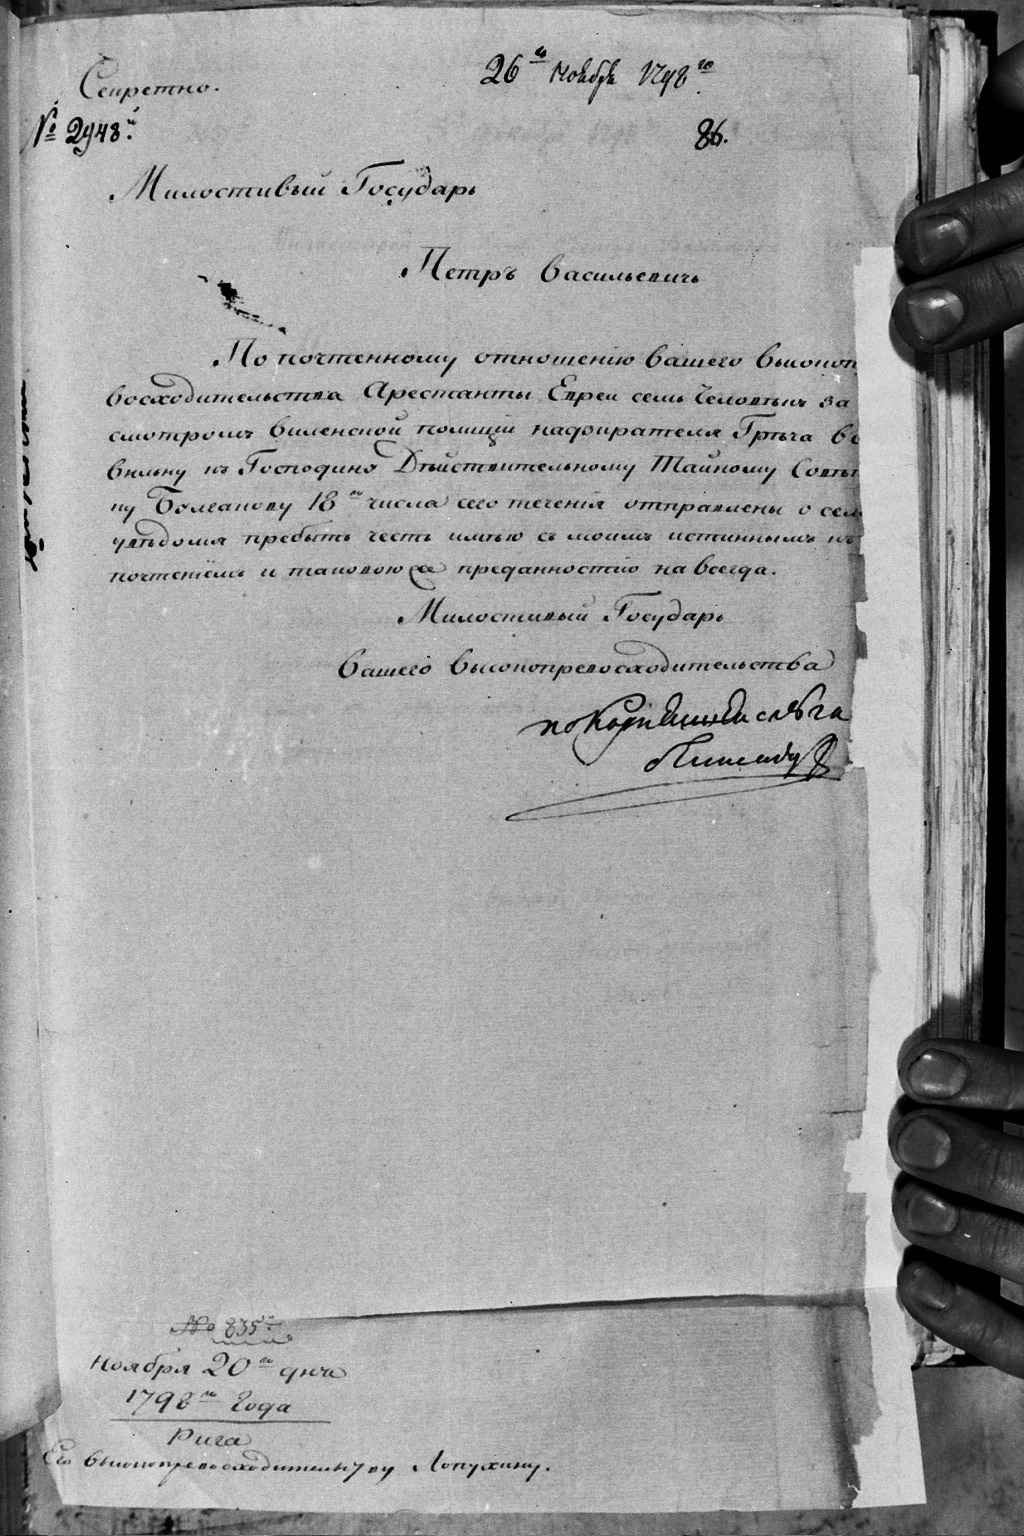 Секретно.
26го Ноября 1798го
№ 2948й.
86.
Милостивый Государь
Петръ Васильевичь
По почтенному отношению вашего высокоп
восходительства Арестанты Евреи семь человѣкъ за
смотромъ виленской полицiи надзирателя Грѣча во
вильну къ Господину Дѣйствительному Тайному Совѣт
ку Булгакову 18го числа сего теченiя отправлены о сем
увѣдомя пребыть честь имѣю съ моимъ истиннымъ
почтенiемъ и таковою преданностiю на всегда.
Милостивый Государь
вашего высокопревосходительства
покорнѣйшiй слуга
№ 835й.
Ноября 20го дня
1798го Года
Рига
Его высокопревосходительству Лопухину.